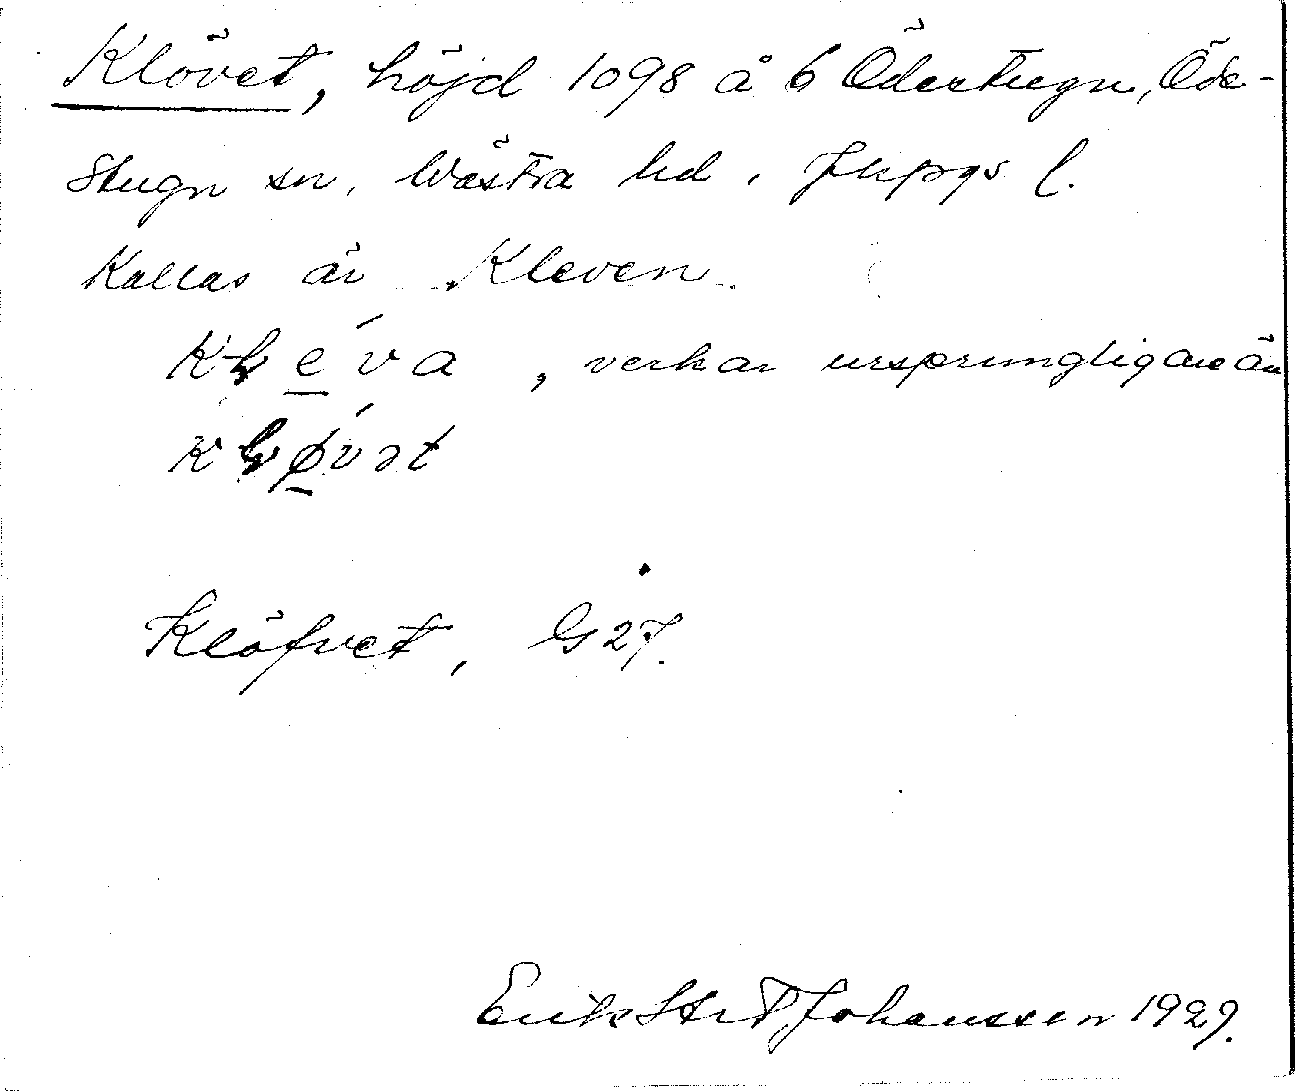 Klövet, höjd 1098 å 6 Ödestugu, Öde-
stugu sn. Västra hd. Jkpgs l.
Kallas är Kleven
kḷe̱´va, verkar ursprungligare än
kḷø̱´vət
Klöfvet, G27.
Erik Johansson 1929.